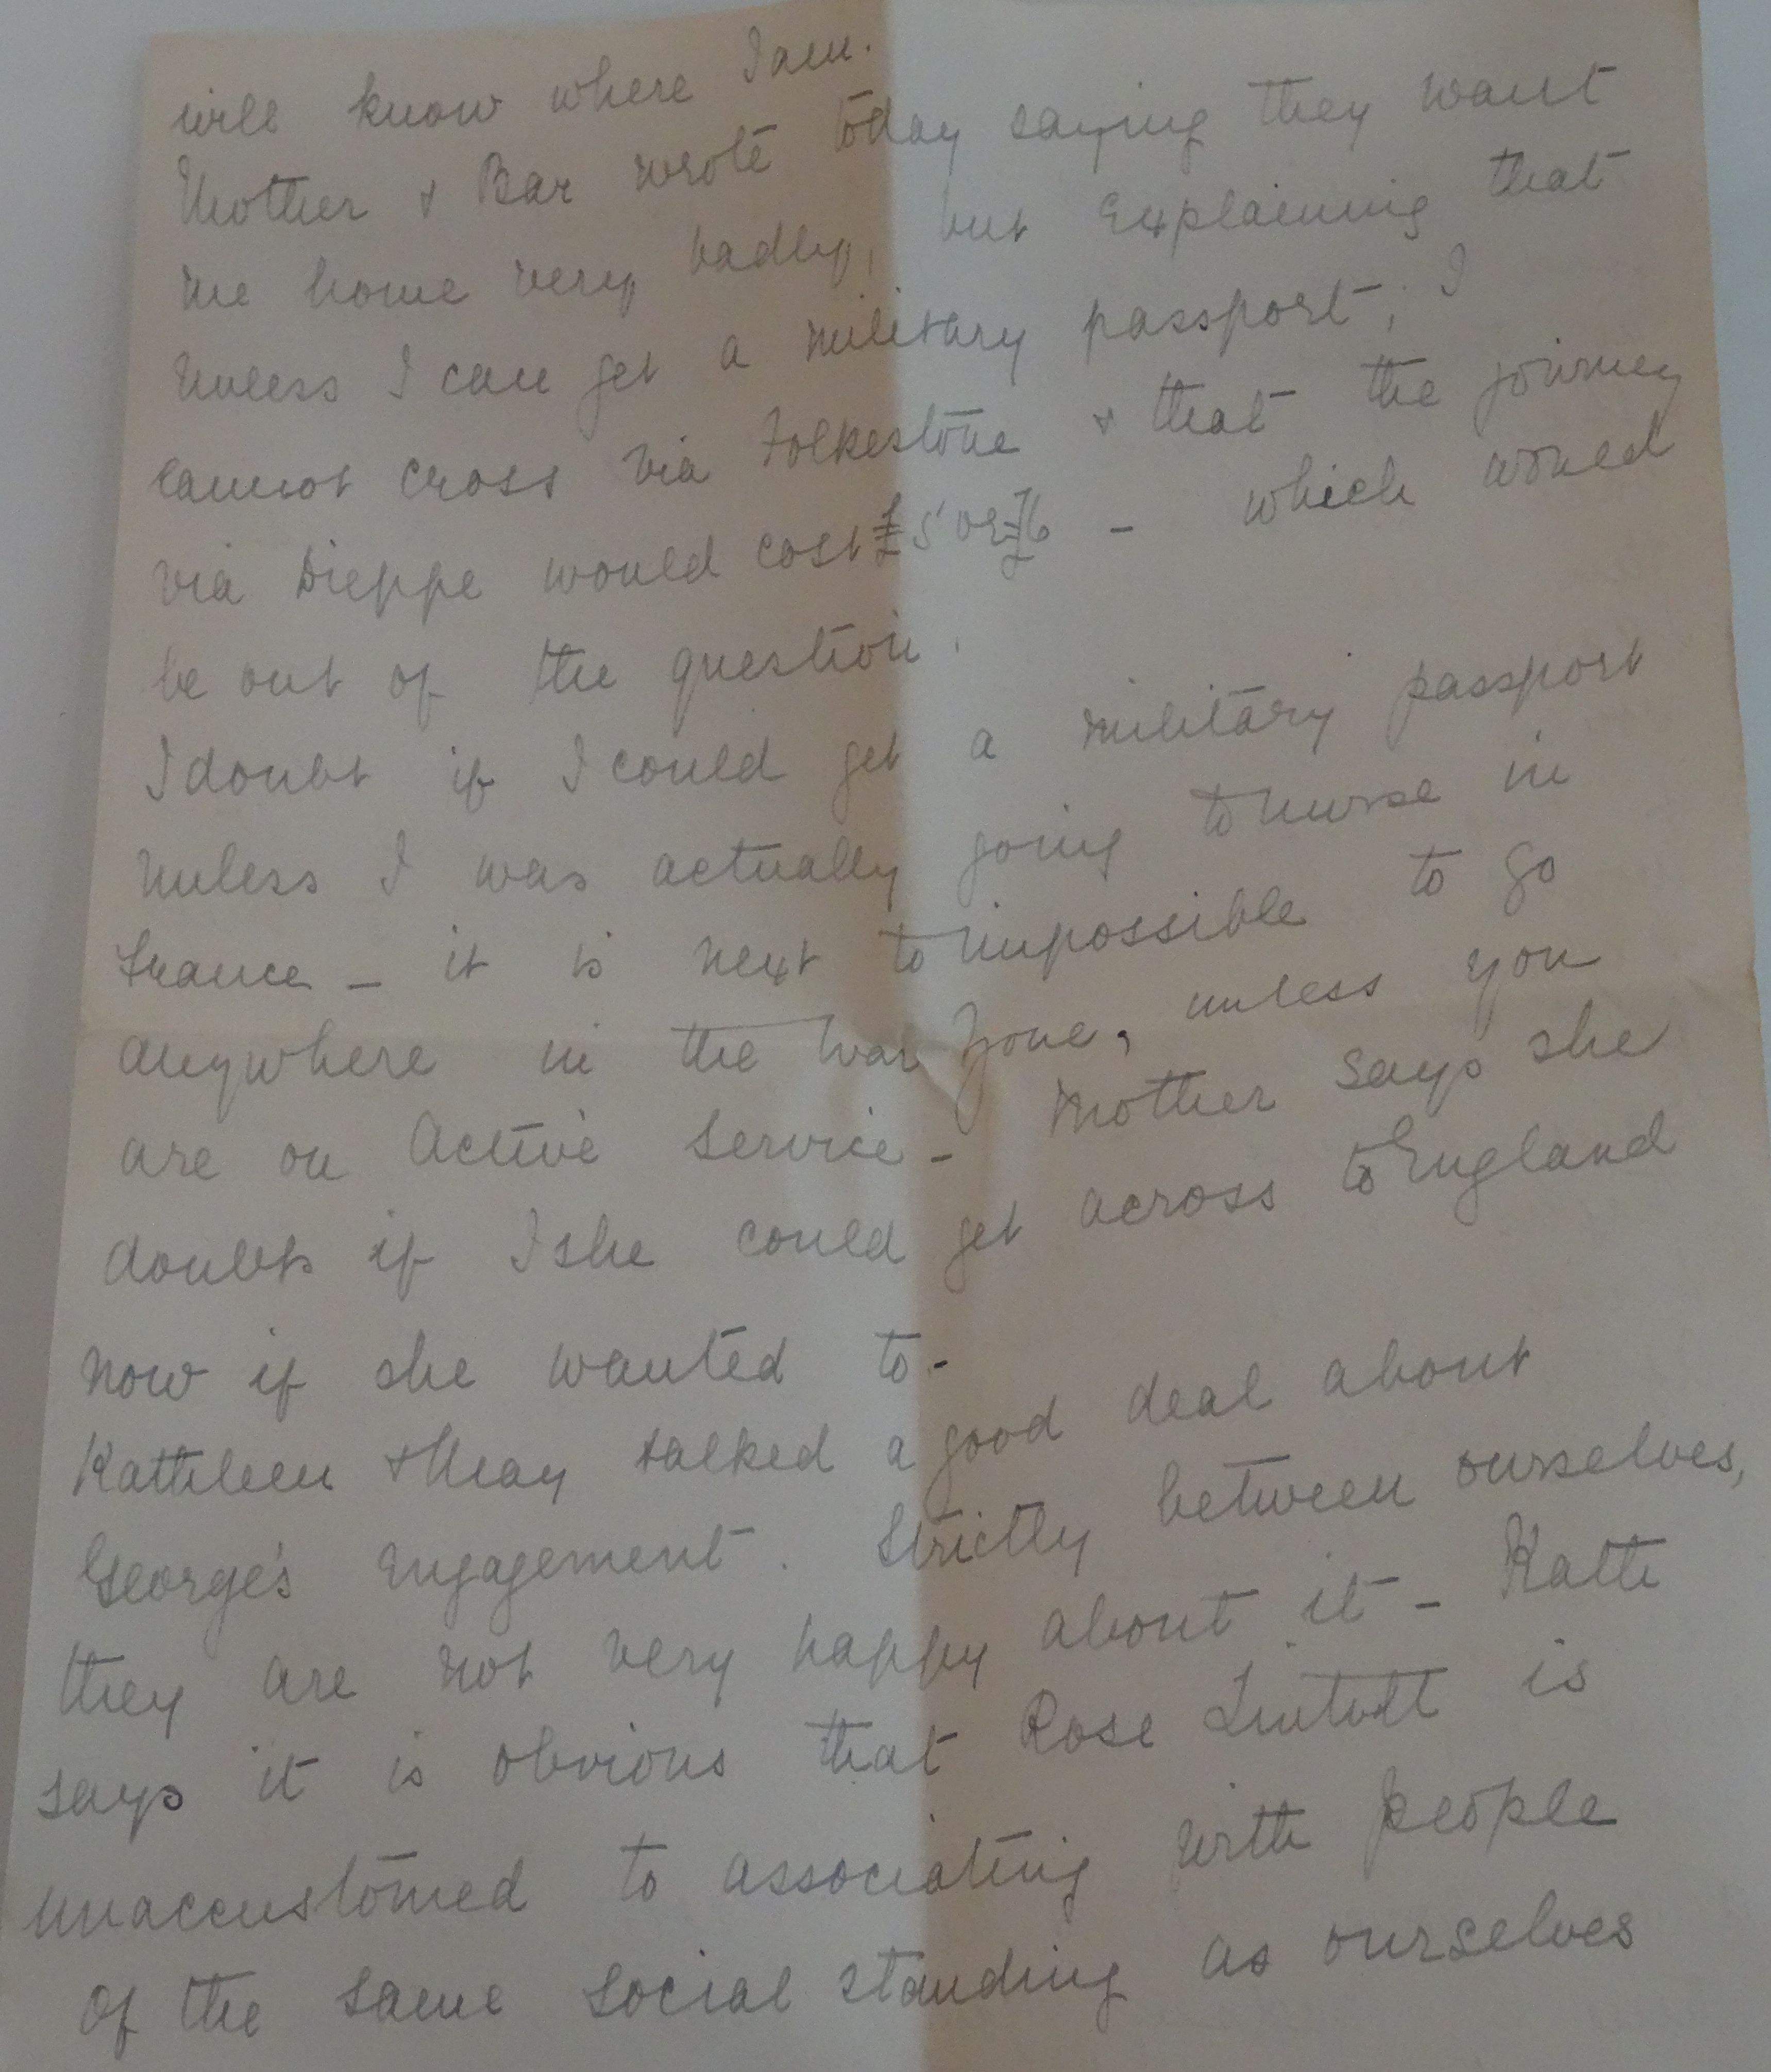 will know where I am.
Mother & Bar wrote today saying they want
me home very badly, but explaining that
unless I can get a military passport, I
cannot cross via Folkestone & that the journey
via Dieppe would cost £5 or £6 - which would
be out of the question.
I doubt if I could get a military passport
unless I was actually going to nurse in
France - it is next to impossible to go
anywhere in the war zone, unless you
are on Active Service - Mother says she
doubts if I she could get across to England
now if she wanted to -
Kathleen & May talked a good deal about
George's engagement. Strictly between ourselves,
they are not very happy about it - Kath
says it is obvious that Rose is
unaccustomed to associating with people
of the same social standing as ourselves